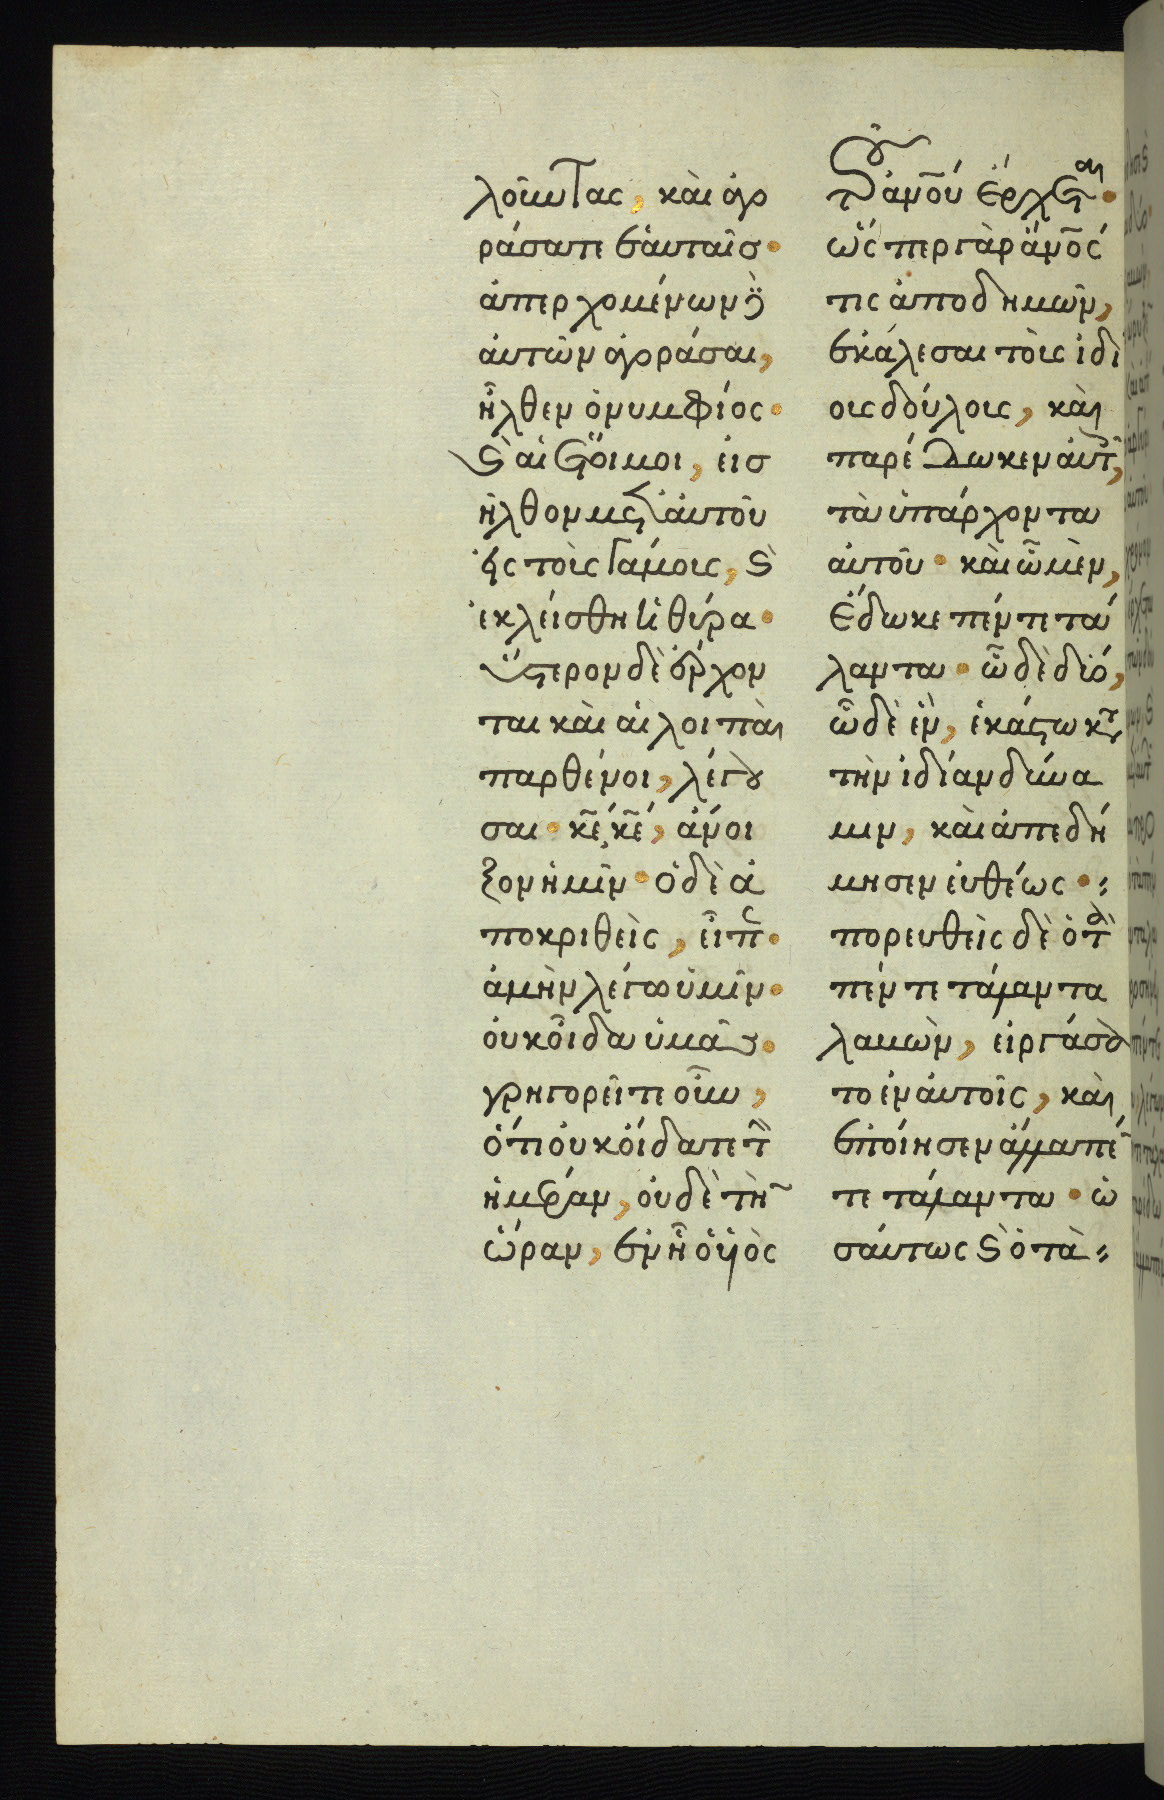 λοῦντας, καὶ ἀγο
ράσατε ἑαυταῖς·
ἀπερχομένων δὲ
αὐτῶν ἀγοράσαι,
ἦλθεν ὁ νυμφίος·
καὶ αἱ ἕτοιμοι, εἰσ
ῆλθον μετ' αὐτοῦ
εἰς τοὺς γάμους, καὶ
ἐκλείσθη ἡ θύρα·
ὕστερον δὲ ἔρχον
ται καὶ αἱ λοιπαὶ
παρθένοι, λέγου
σαι· κε̄ κε̄, ἄνοι
ξον ἡμῖν· ὁ δὲ ἀ
ποκριθεὶς, εἶπεν·
ἀμὴν λέγω ὑμῖν·
οὐκ οἶδα ὑμᾶς·
γρηγορεῖτε οὖν,
ὅτι οὐκ οἴδατε τὴν
ἡμέραν, οὐδὲ τὴν
ὥραν, ἐν ᾗ ὁ υἱὸς
τοῦ ἀνο̄υ ἔρχεται·
ὥσπερ γὰρ ἄνο̄ς
τις ἀποδημῶν,
ἐκάλεσε τοὺς ἰδί
ους δούλους, καὶ
παρέδωκεν αὐτοῖς,
τὰ ὑπάρχοντα
αὐτοῦ· καὶ ᾧ μὲν,
ἔδωκε πέντε τά
λαντα· ᾧ δὲ δύο,
ᾧ δὲ ἓν, ἑκάστω κατὰ
τὴν ἰδίαν δύνα
μιν, καὶ ἀπεδή
μησεν εὐθέως·
πορευθεὶς δὲ ὁ τὰ
πέντε τάλαντα
λαβὼν, εἰργάσα
το ἐν αὐτοῖς, καὶ
ἐποίησεν ἄλλα πέν
τε τάλαντα· ὡ
σαύτως καὶ ὁ τὰ